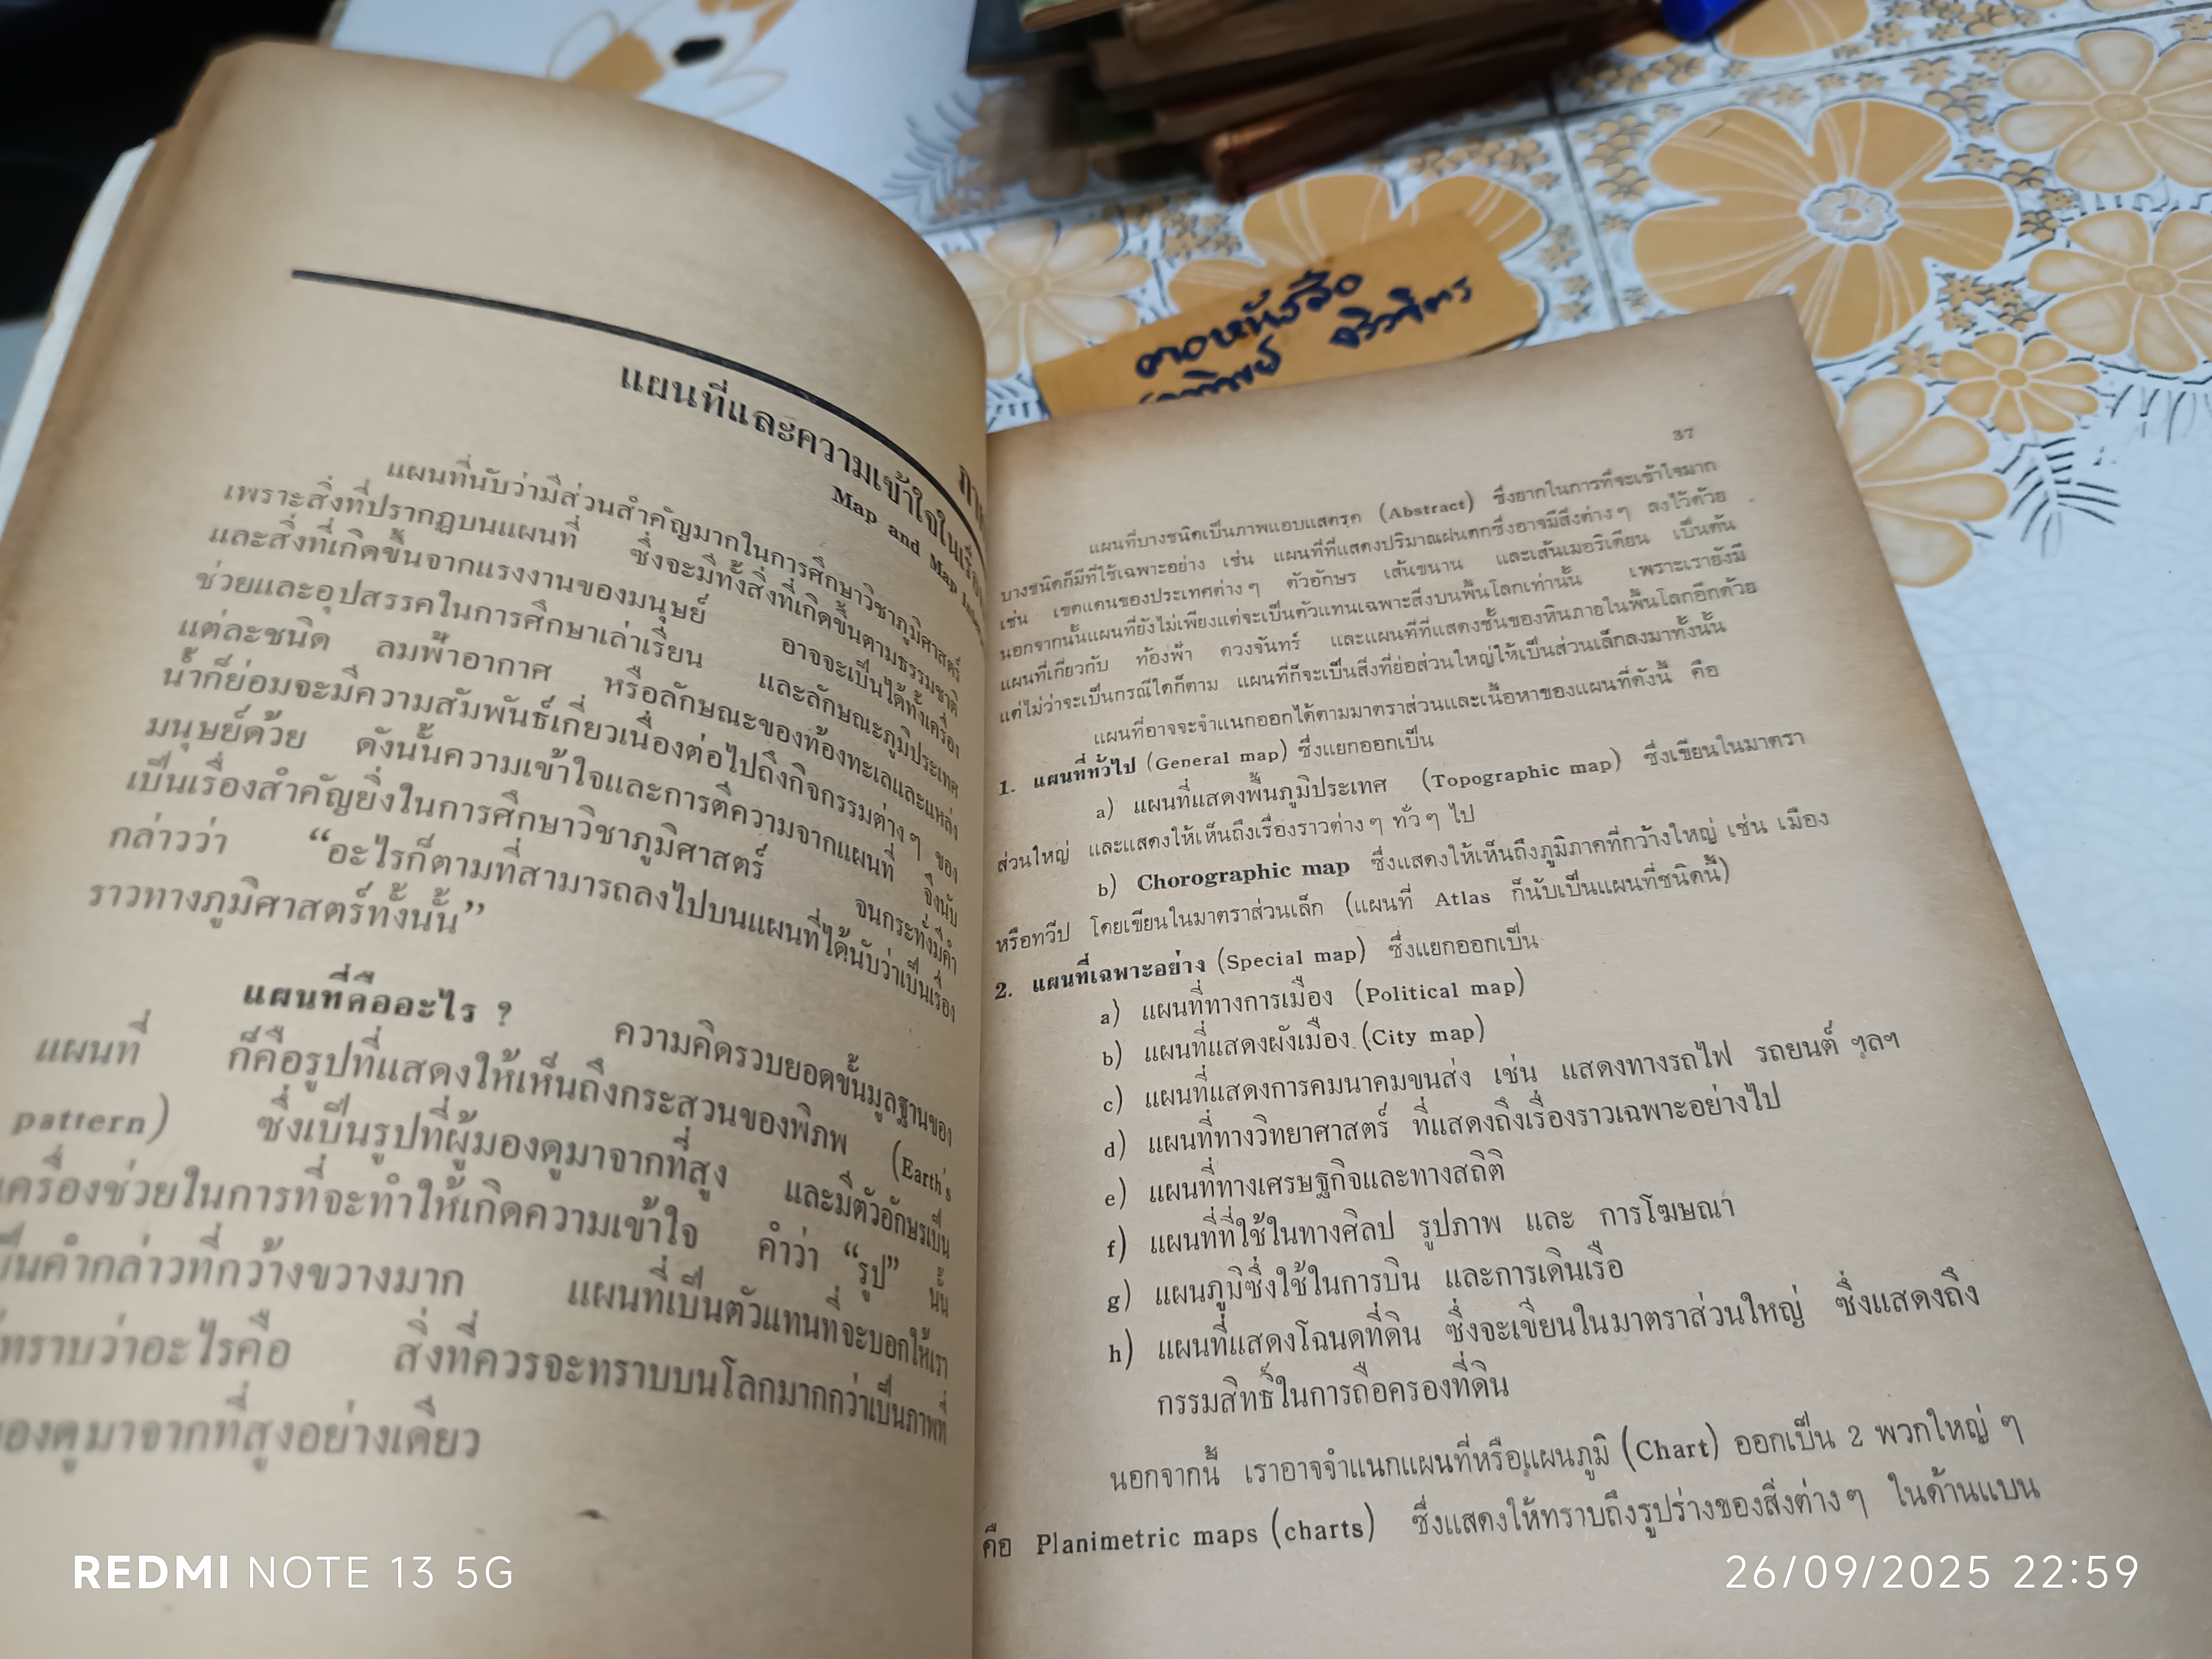 แผนที่และความเข้าใจในเรื่อง
Map and Map
แผนที่นับว่ามีส่วนสำคัญมากในการศึกษาวิชาภูมิศาสตร์
เพราะสิ่งที่ปรากฏบนแผนที่ ซึ่งจะมีทั้งสิ่งที่เกิดขึ้นตามธรรมชาติ
และสิ่งที่เกิดขึ้นจากแรงงานของมนุษย์ อาจจะเป็นได้ทั้งเครื่อง
ช่วยและอุปสรรคในการศึกษาเล่าเรียน และลักษณะภูมิประเทศ
แต่ละชนิด ลมฟ้าอากาศ หรือลักษณะของท้องทะเลและแหล่ง
น้ำก็ย่อมจะมีความสัมพันธ์เกี่ยวเนื่องต่อไปถึงกิจกรรมต่างๆ ของ
มนุษย์ด้วย ดังนั้นความเข้าใจและการตีความจากแผนที่ จึงนับ
เป็นเรื่องสำคัญยิ่งในการศึกษาวิชาภูมิศาสตร์ จนกระทั่งมีคำ
กล่าวว่า “อะไรก็ตามที่สามารถลงไปบนแผนที่ได้นับว่าเป็นเรื่อง
ราวทางภูมิศาสตร์ทั้งนั้น”
แผนที่คืออะไร ? ความคิดรวบยอดขั้นมูลฐานของ
แผนที่ ก็คือรูปที่แสดงให้เห็นถึงกระสวนของพิภพ (Earth's
pattern) ซึ่งเป็นรูปที่ผู้มองดูมาจากที่สูง และมีตัวอักษรเป็น
เครื่องช่วยในการที่จะทำให้เกิดความเข้าใจ คำว่า “รูป” นั้น
เป็นคำกล่าวที่กว้างขวางมาก แผนที่เป็นตัวแทนที่จะบอกให้เรา
ทราบว่าอะไรคือ สิ่งที่ควรจะทราบบนโลกมากกว่าเป็นภาพที่
มองดูมาจากที่สูงอย่างเดียว
ตอหนังสือ
37
แผนที่บางชนิดเป็นภาพแอบแสตรค (Abstract) ซึ่งยากในการที่จะเข้าใจมาก
บางชนิดก็มีที่ใช้เฉพาะอย่าง เช่น แผนที่ที่แสดงปริมาณฝนตกซึ่งอาจมีสิ่งต่างๆ ลงไว้ด้วย
เช่น เขตแดนของประเทศต่างๆ ตัวอักษร เส้นขนาน และเส้นเมอริเดียน เป็นต้น
นอกจากนั้นแผนที่ยังไม่เพียงแต่จะเป็นตัวแทนเฉพาะสิ่งบนพื้นโลกเท่านั้น เพราะเรายังมี
แผนที่เกี่ยวกับ ท้องฟ้า ดวงจันทร์ และแผนที่ที่แสดงชั้นของหินภายในพื้นโลกอีกด้วย
แต่ไม่ว่าจะเป็นกรณีใดก็ตาม แผนที่ก็จะเป็นสิ่งที่ย่อส่วนใหญ่ให้เป็นส่วนเล็กลงมาทั้งนั้น
แผนที่อาจจะจำแนกออกได้ตามมาตราส่วนและเนื้อหาของแผนที่ดังนี้ คือ
1. แผนที่ทั่วไป (General map) ซึ่งแยกออกเป็น
a) แผนที่แสดงพื้นภูมิประเทศ (Topographic map) ซึ่งเขียนในมาตรา
ส่วนใหญ่ และแสดงให้เห็นถึงเรื่องราวต่างๆ ทั่วๆ ไป
b) Chorographic map ซึ่งแสดงให้เห็นถึงภูมิภาคที่กว้างใหญ่ เช่น เมือง
หรือทวีป โดยเขียนในมาตราส่วนเล็ก (แผนที่ Atlas ก็นับเป็นแผนที่ชนิดนี้)
2. แผนที่เฉพาะอย่าง (Special map) ซึ่งแยกออกเป็น
a) แผนที่ทางการเมือง (Political map)
b) แผนที่แสดงผังเมือง (City map)
c) แผนที่แสดงการคมนาคมขนส่ง เช่น แสดงทางรถไฟ รถยนต์ ฯลฯ
d) แผนที่ทางวิทยาศาสตร์ ที่แสดงถึงเรื่องราวเฉพาะอย่างไป
e) แผนที่ทางเศรษฐกิจและทางสถิติ
f) แผนที่ที่ใช้ในทางศิลป รูปภาพ และ การโฆษณา
g) แผนภูมิซึ่งใช้ในการบิน และการเดินเรือ
h) แผนที่แสดงโฉนดที่ดิน ซึ่งจะเขียนในมาตราส่วนใหญ่ ซึ่งแสดงถึง
กรรมสิทธิ์ในการถือครองที่ดิน
นอกจากนี้ เราอาจจำแนกแผนที่หรือแผนภูมิ (Chart) ออกเป็น 2 พวกใหญ่ ๆ
คือ Planimetric maps (charts) ซึ่งแสดงให้ทราบถึงรูปร่างของสิ่งต่างๆ ในด้านแบน
REDMI NOTE 13 5G
26/09/2025 22:59